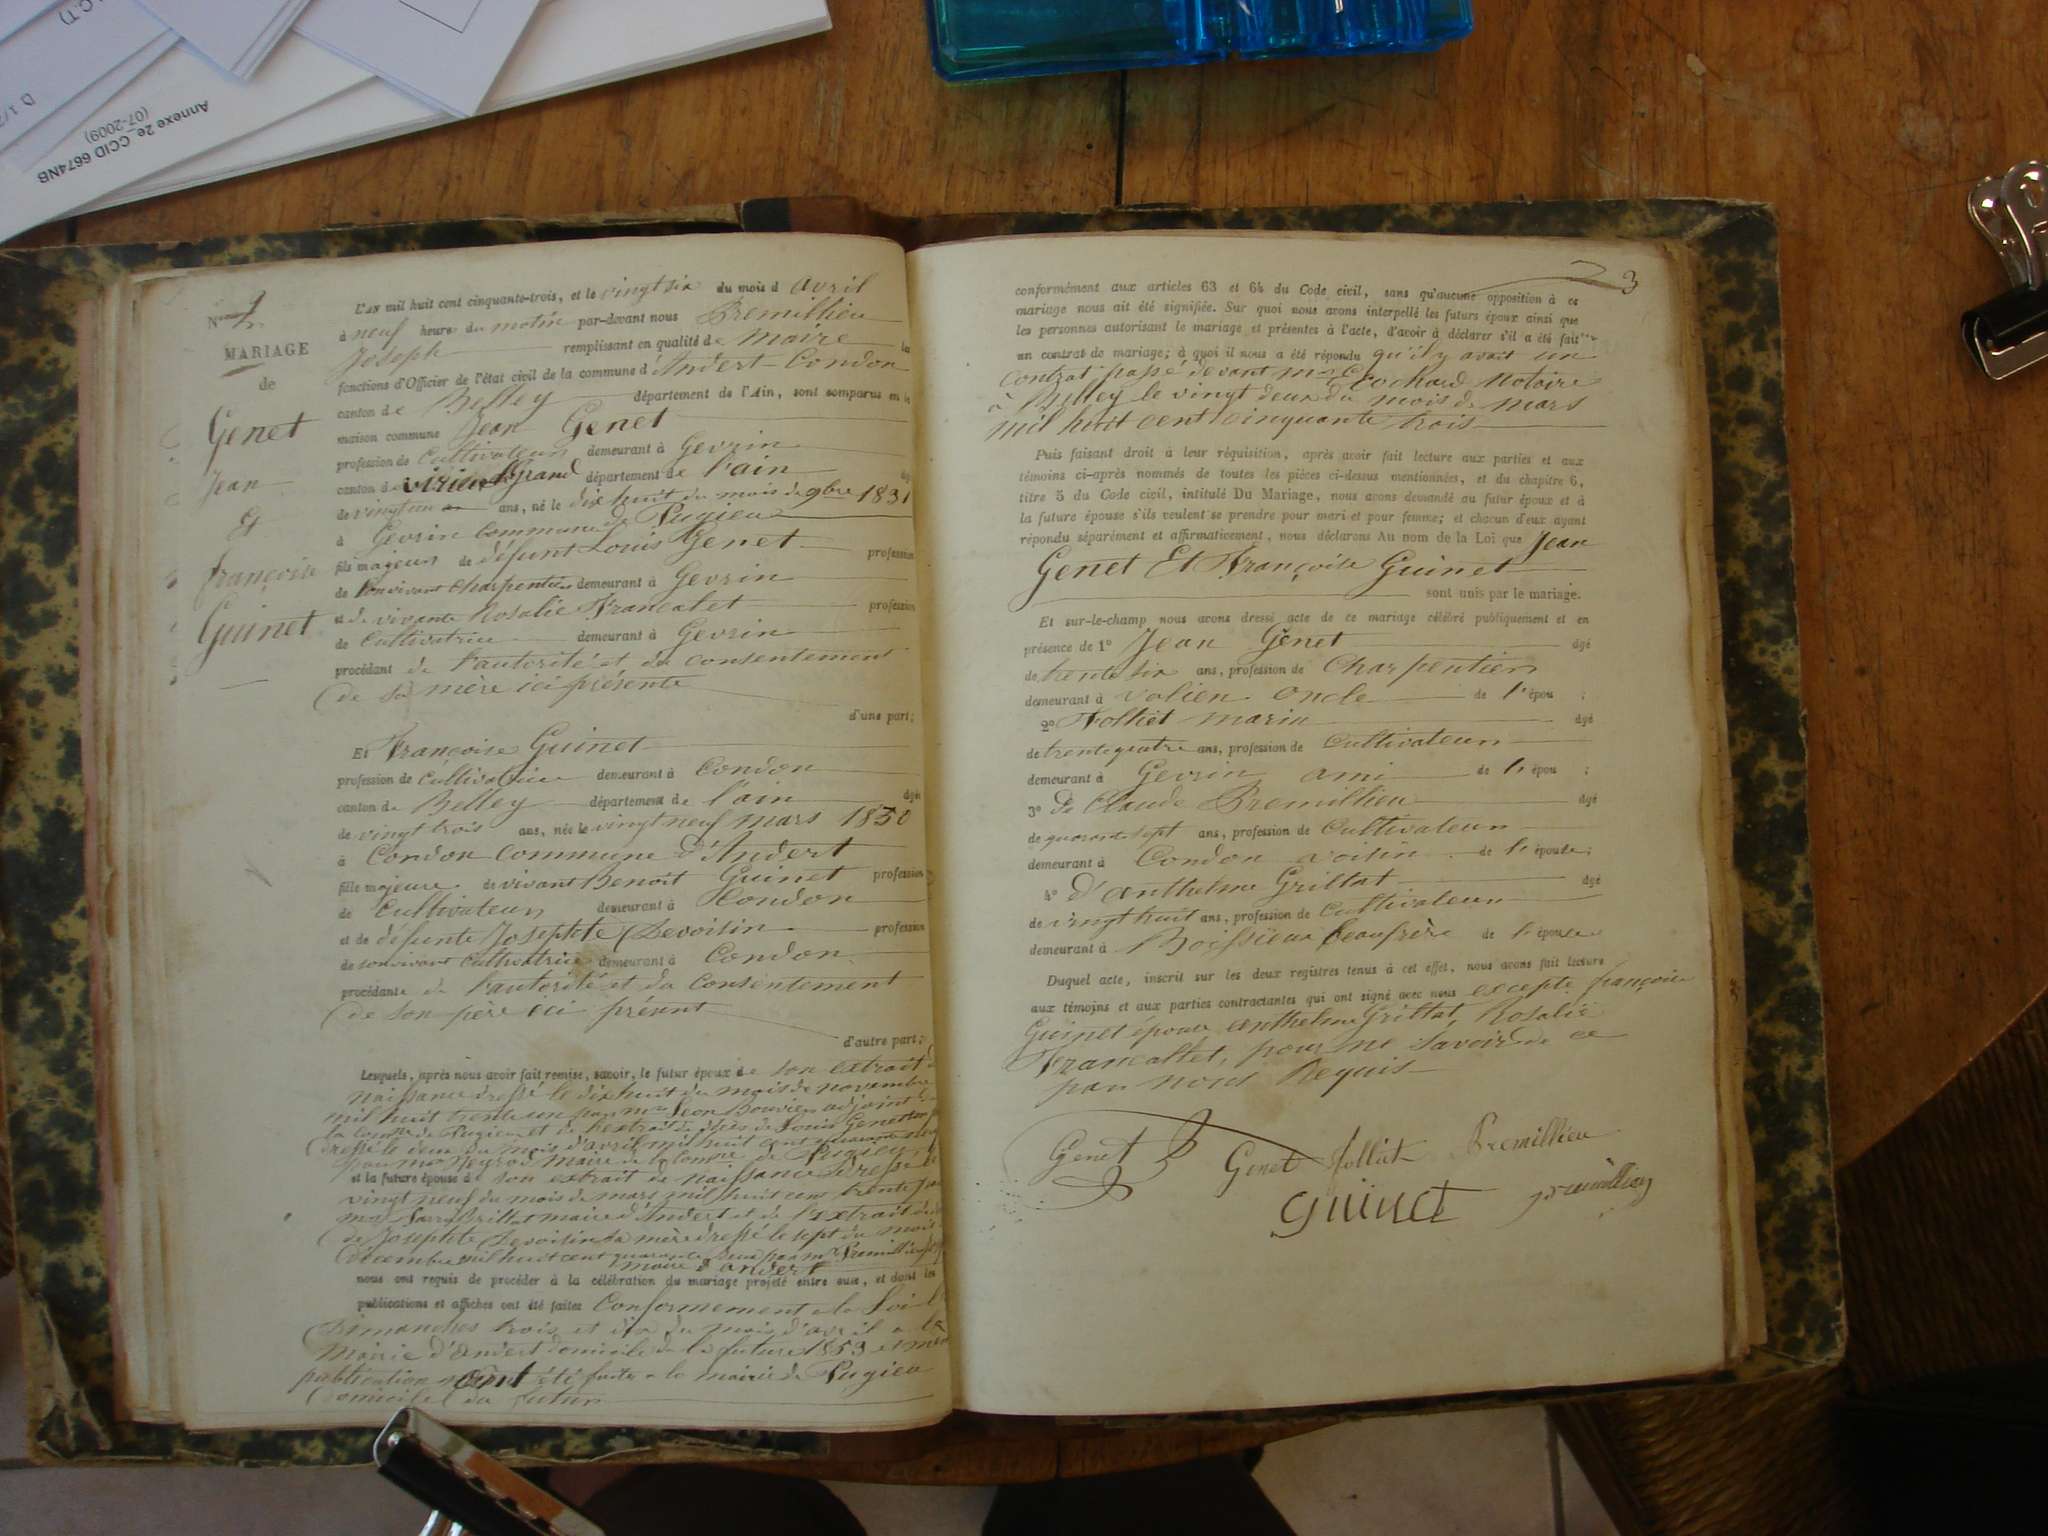 C.T)
D 1/
Annexe 2e_CCID 6674NB
(07-2009)
N
MARIAGE
de
Genet
Jean
Et
françoise
Guinet
L'an mil huit cent cinquante-trois, et le vingt six du mois d avril
à neuf heure du matin par-devant nous Premillieu
Joseph remplissant en qualité de maire les
fonctions d'Officier de l'état civil de la commune d'Andert-Condon
canton de Belley département de l'Ain, sont comparus en la
maison commune Jean Genet
profession de Cultivateur demeurant à Gevrin
canton de virieu le Grand département de l'ain âgé
de vingt un ans, né le dix huit du mois de 9bre 1831
à Gevrin Commune de Pugieu
fils majeur de défunt Louis Genet profession
de son vivant Charpentier demeurant à Gevrin
et de vivante Rosalie Francalet profession
de Cultivatrice demeurant à Gevrin
procédant de l'autorité et du consentement
de sa mère ici présente
d'une part;
Et Françoise Guinet
profession de Cultivatrice demeurant à Condon
canton de Belley département de l'ain âgée
de vingt trois ans, née le vingt neuf mars 1830
à Condon Commune d'Andert
fille majeure de vivant Benoit Guinet profession
de Cultivateur demeurant à Condon
et de défunte Josephte Devoisin profession
de son vivant Cultivatrice demeurant à Condon
procédante de l'autorité et du Consentement
de son père ici présent
d'autre part;
Lesquels, après nous avoir fait remise, savoir, le futur époux de son extrait d
naissance dressé le dix huit du mois de novembre
mil huit trente un par mr Bouvier adjoint
la Comne de Pugieu et de l'extrait de décès de Louis Genet
dressé le deux du mois d'avril mil huit cent quarante neuf
par mr maire de la Comne de Pugieu
et la future épouse de son extrait de naissance dressé le
vingt neuf du mois de mars mil huit cent trente par
mr Brillat maire d'Andert et de l'extrait de
de Josephte Devoisin sa mère dressé le sept du mois
décembre mil huit cent quarante deux par mr Premillieu
maire d'andert
nous ont requis de procéder à la célébration du mariage projeté entre eux, et dont les
publications et affiches ont été faites Conformement a la Loi l
Dimanches trois et dix du mois d'avril a la
Mairie d'Andert domicile de la future 1853 et
publication ont été faite a la mairie de Pugieu
domicile du futur
3
conformément aux articles 63 et 64 du Code civil, sans qu'aucune opposition à ce
mariage nous ait été signifiée. Sur quoi nous avons interpellé les futurs époux ainsi que
les personnes autorisant le mariage et présentes à l'acte, d'avoir à déclarer s'il a été fait
un contrat de mariage; à quoi il nous a été répondu qu'il y avait un
Contrat passé devant mr Cochard Notaire
à Belley le vingt deux du mois de mars
mil huit cent cinquante trois
Puis faisant droit à leur réquisition, après avoir fait lecture aux parties et aux
témoins ci-après nommés de toutes les pièces ci-dessus mentionnées, et du chapitre 6,
titre 5 du Code civil, intitulé Du Mariage, nous avons demandé au futur époux et à
la future épouse s'ils veulent se prendre pour mari et pour femme; et chacun d'eux ayant
répondu séparément et affirmativement, nous déclarons Au nom de la Loi que Jean
Genet Et Françoise Guinet
sont unis par le mariage.
Et sur-le-champ nous avons dressé acte de ce mariage célébré publiquement et en
présence de 1° Jean Genet âgé
de trente six ans, profession de Charpentier
demeurant à Volien Oncle de l'épou ;
2° Folliet marin âgé
de trente quatre ans, profession de Cultivateur
demeurant à Gevrin ami de l'épou ;
3° De Claude Premillieu âgé
de quarante sept ans, profession de Cultivateur
demeurant à Condon voisin de l'épouse;
4° d'anthelme Grillat âgé
de vingt huit ans, profession de Cultivateur
demeurant à Boissieux beaufrère de l'épouse
Duquel acte, inscrit sur les deux registres tenus à cet effet, nous avons fait lecture
aux témoins et aux parties contractantes qui ont signé avec nous excepté françoise
Guinet épouse anthelme Grillat, Rosalie
Francallet, pour ne savoir de ce
par nous Requis
Genet Genet folliet Premillieu
guinet premillieu